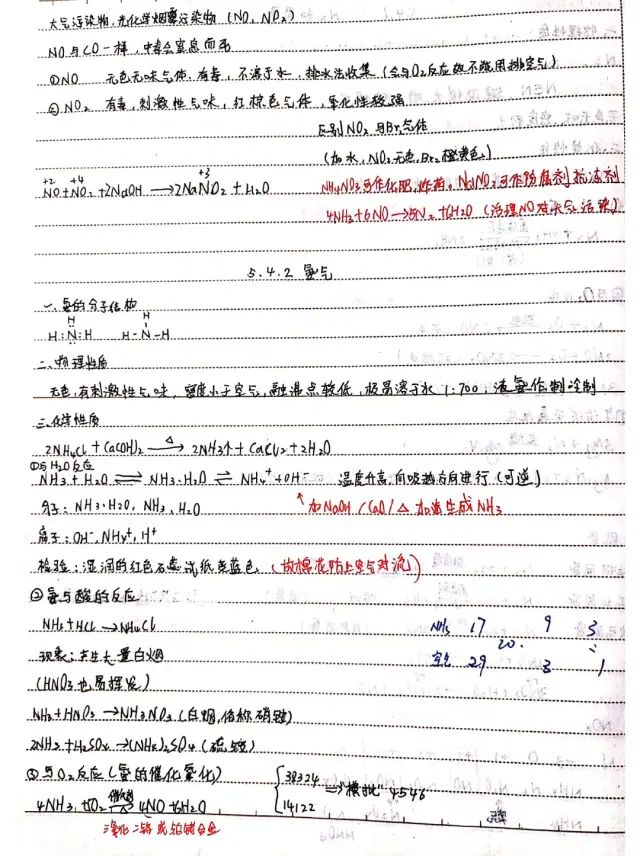 大气污染物,光化学烟雾污染物 (NO, NO₂)
NO与CO一样,中毒会窒息而死
①NO 无色无味气体.有毒,不溶于水,排水法收集(会与O₂反应故不能用排空气)
②NO₂ 有毒,刺激性气味,红棕色气体,氧化性较强
区别NO₂与Br₂气体
(加水,NO₂无色,Br₂橙黄色)
+2 +4 +3
NO+NO₂+2NaOH→2NaNO₂+H₂O NH₄NO₃可作化肥,炸药。NaNO₂可作防腐剂抗冻剂
4NH₃+6NO→5N₂+6H₂O (治理NO对大气污染)
5.4.2 氨气
一、氨的分子结构
H H
H:N:H H-N-H
二、物理性质
无色,有刺激性气味,密度小于空气,融沸点较低,极易溶于水 1:700,液氨作制冷制
三.化学性质
2NH₄Cl+Ca(OH)₂ △→ 2NH₃↑+CaCl₂+2H₂O
①与H₂O反应
NH₃+H₂O⇌NH₃·H₂O⇌NH₄⁺+OH⁻ 温度升高,向吸热方向进行(可逆)
分子:NH₃·H₂O, NH₃, H₂O ↑加NaOH/CaO/△ 加速生成NH₃
离子:OH⁻,NH₄⁺,H⁺
检验:湿润的红色石蕊试纸变蓝色.(放棉花防止空气对流)
②氨与酸的反应
NH₃+HCl→NH₄Cl NH₃ 17 9 3
20. :
现象:产生大量白烟 空气 29 3 1
(HNO₃也易挥发)
NH₃+HNO₃→NH₃NO₃(白烟,俗称硝铵)
2NH₃+H₂SO₄→(NH₄)₂SO₄(硫铵)
③与O₂反应(氨的催化氧化) {38324
⇒"模批"4546
4NH₃+5O₂ 催化剂 △ 4NO+6H₂O 14122